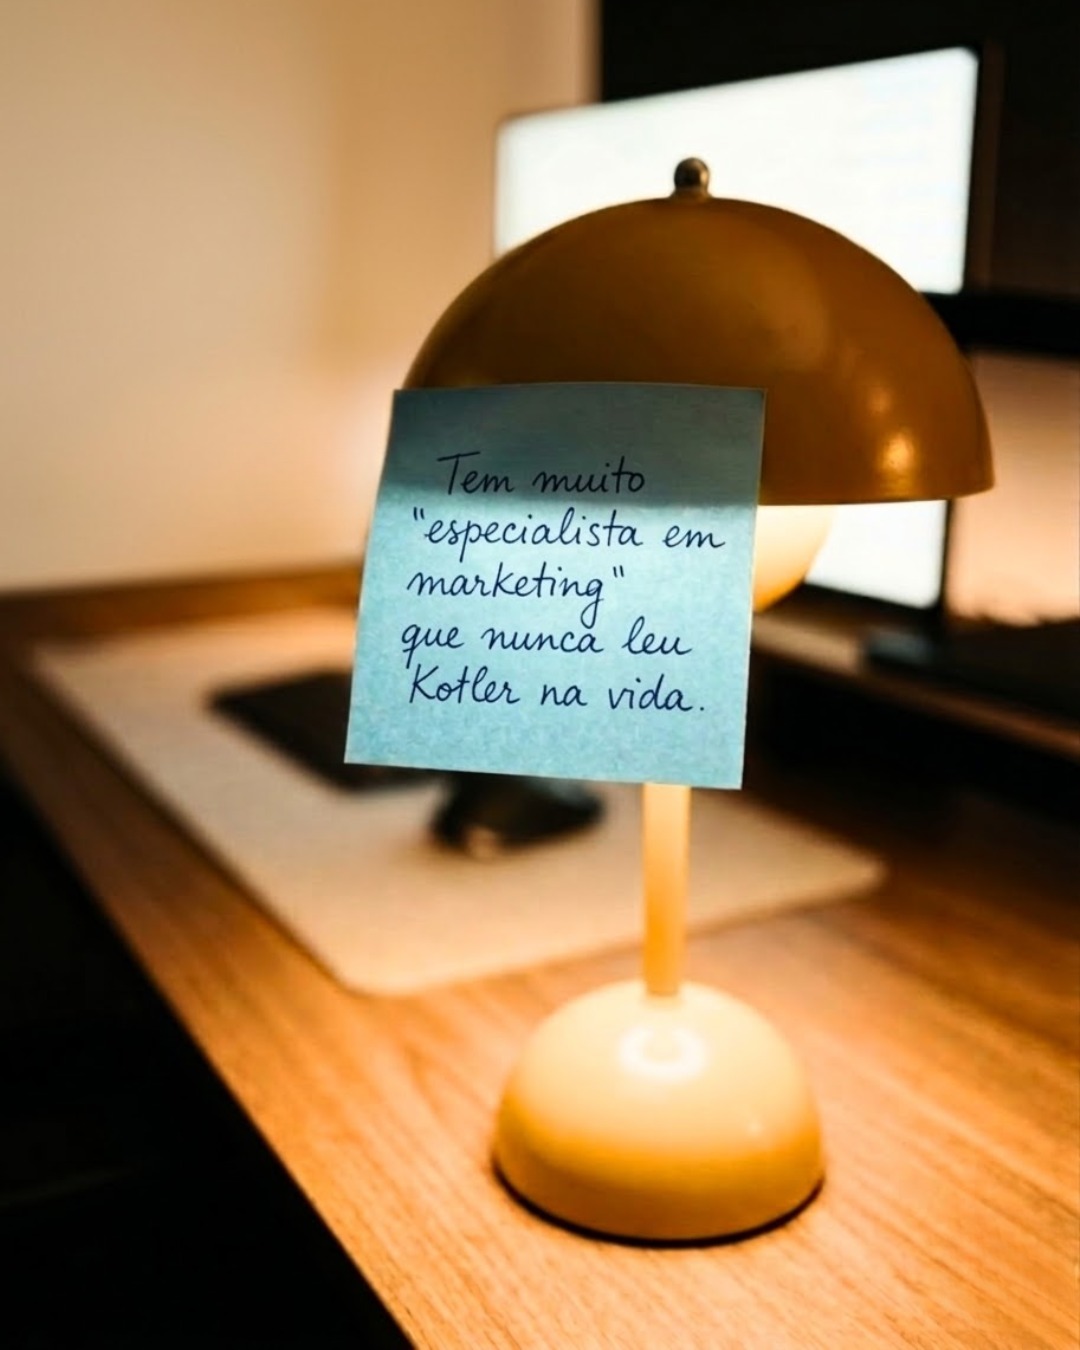 Tem muito
"especialista em
marketing"
que nunca leu
Kotler na vida.